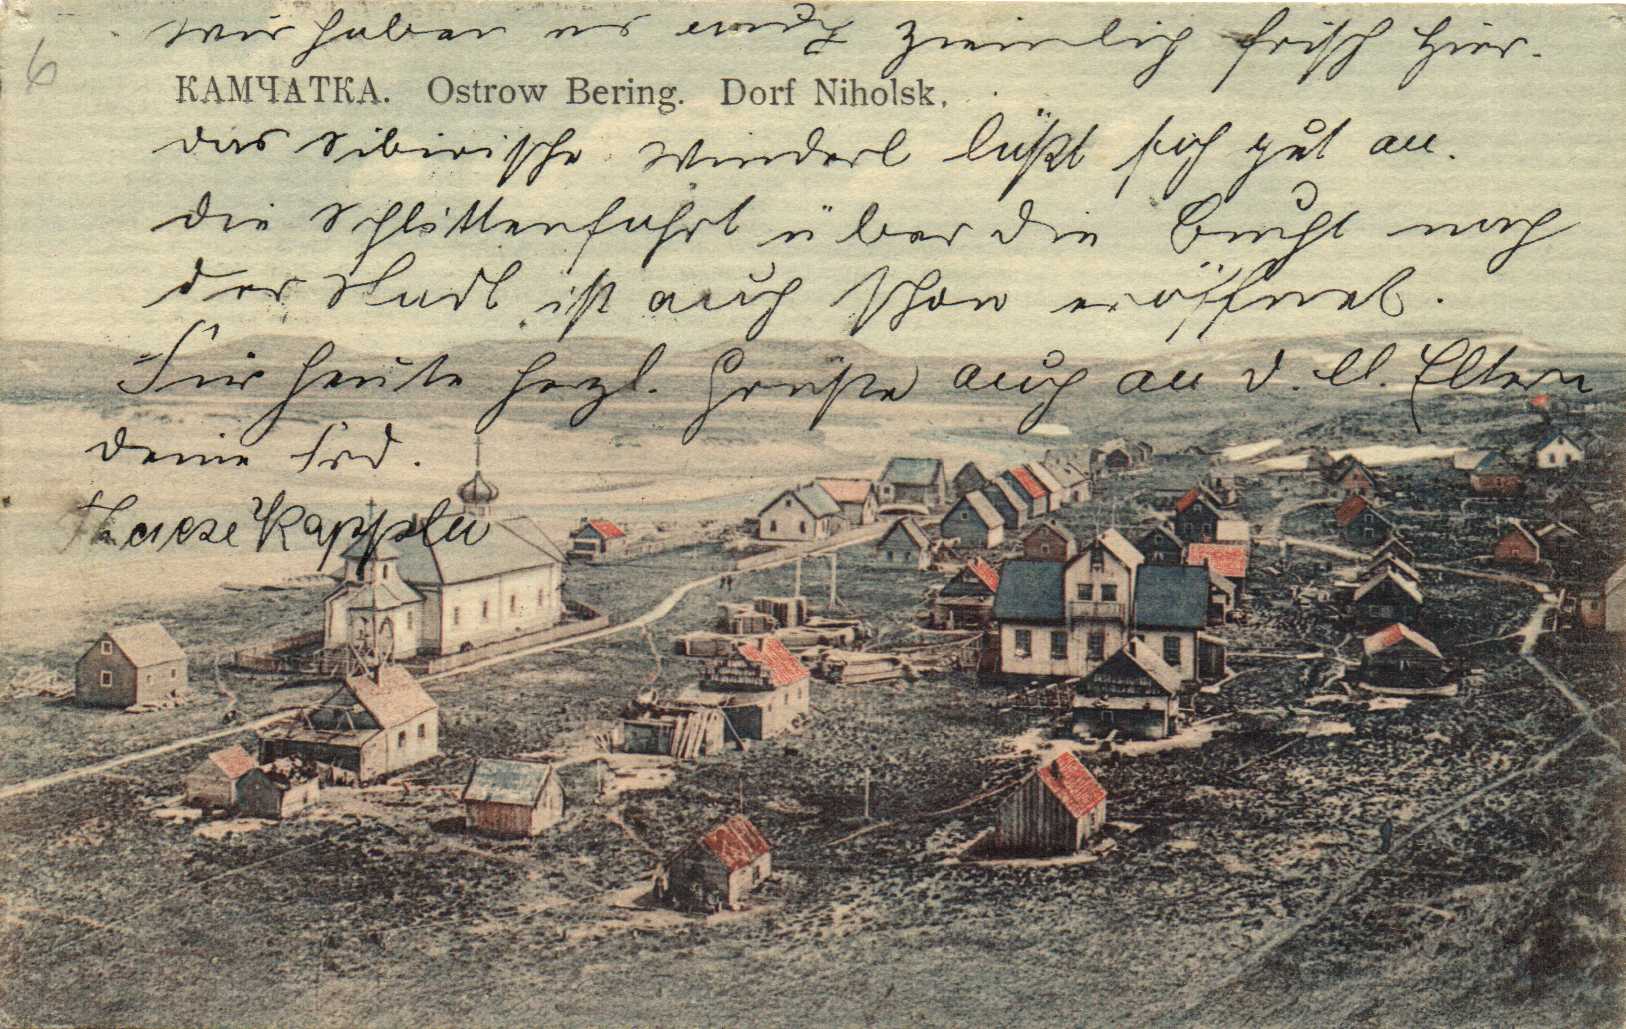 6
Wir haben es auch ziemlich frisch hier.
КАМЧАТКА. Ostrow Bering. Dorf Niholsk.
das sibirische Winderl läßt sich gut an.
die Schlittenfahrt über die Bucht nach
der Stadt ist auch schon eröffnet.
Für heute herzl. Grüße auch an d. ll. Eltern
deine Frd.
Kappler